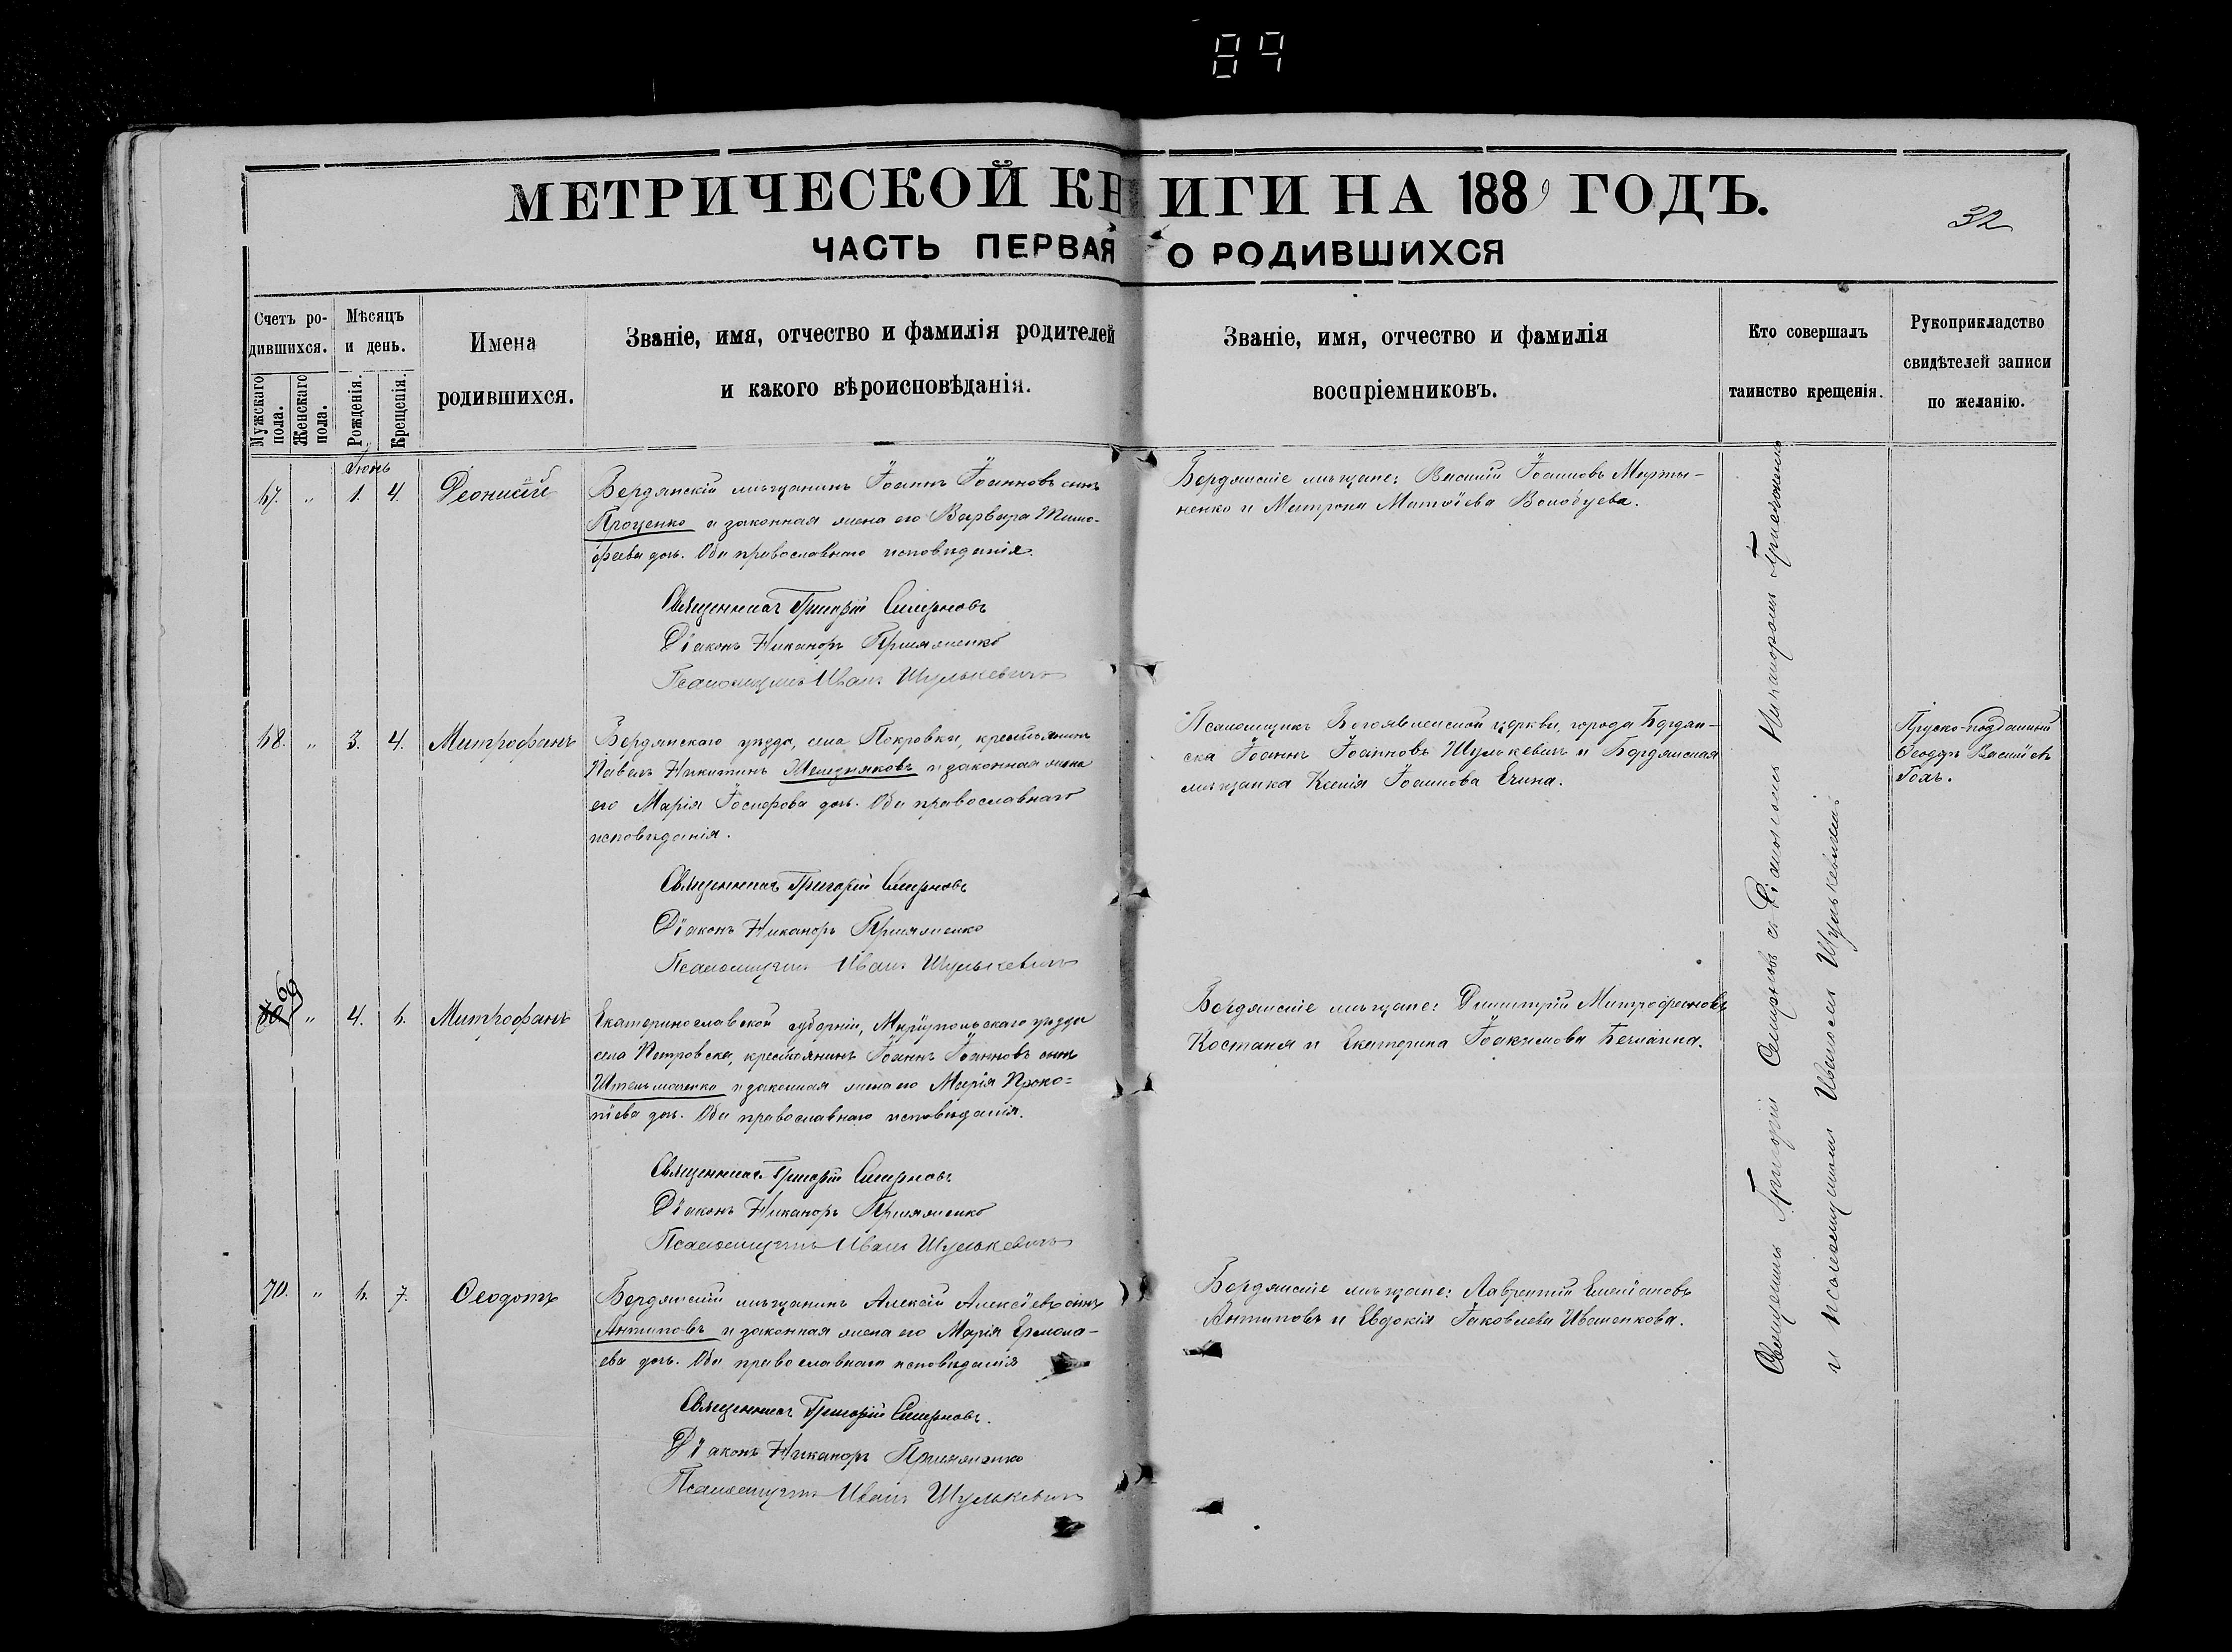 89
МЕТРИЧЕСКОЙ КНИГИ НА 1889 ГОДЪ.
32
ЧАСТЬ ПЕРВАЯ О РОДИВШИХСЯ
Счетъ ро-
дившихся.
Мужскаго пола.
Женскаго пола.
Мѣсяцъ
и день.
Рожденія.
Крещенія.
Имена
родившихся.
Званіе, имя, отчество и фамилія родителей
и какого вѣроисповѣданія.
Званіе, имя, отчество и фамилія
воспріемниковъ.
Кто совершалъ
таинство крещенія.
Рукоприкладство
свидѣтелей записи
по желанію.
Іюнь
67. " 1. 4. Леонисій
Бердянскій мѣщанинъ Іоаннъ Іоанновъ сынъ
Проценко и законная жена его Варвара Тимо-
феева дочь. Оба православнаго исповѣданія.
Священникъ Григорій Смирновъ
Діаконъ Никаноръ
Псаломщикъ Иванъ Шулькевичъ
Бердянскіе мѣщане: Василій Іоанновъ Марты-
ненко и Матрона Матѳіева Волобуева.
68. " 3. 4. Митрофанъ
Бердянскаго уѣзда, села Покровки, крестьянинъ
Павелъ Никитинъ и законная жена
его Марія Іосифова дочь. Оба православнаго
исповѣданія.
Священникъ Григорій Смирновъ
Діаконъ Никаноръ
Псаломщикъ Иванъ Шулькевичъ
Псаломщикъ Богоявленской церкви, города Бердян-
ска Іоаннъ Іоанновъ Шулькевичъ и Бердянская
мѣщанка Ксенія Іоаннова Ечина.
Прусско-подданный
Ѳеодоръ Васильевъ
69 " 4. 6. Митрофанъ
Екатеринославской губерніи, Маріупольскаго уѣзда
села Петровска, крестьянинъ Іоаннъ Іоанновъ сынъ
Штельмаченко и законная жена его Марія Проко-
піева дочь. Оба православнаго исповѣданія.
Священникъ Григорій Смирновъ
Діаконъ Никаноръ
Псаломщикъ Иванъ Шулькевичъ
Бердянскіе мѣщане: Димитрій Митрофановъ
Костаня и Екатерина Іоакимова
70. " 6. 7. Ѳеодотъ
Бердянскій мѣщанинъ Алексій Алексіевъ сынъ
Антиповъ и законная жена его Марія Ермола-
ева дочь. Оба православнаго исповѣданія
Священникъ Григорій Смирновъ.
Діаконъ Никаноръ
Псаломщикъ Иванъ Шулькевичъ
Бердянскіе мѣщане: Лаврентій Емеліановъ
Антиповъ и Евдокія Іаковлева Ивашенкова.
Священникъ Григорій Смирновъ съ Діакономъ Никаноромъ
и псаломщикомъ Иваномъ Шулькевичемъ